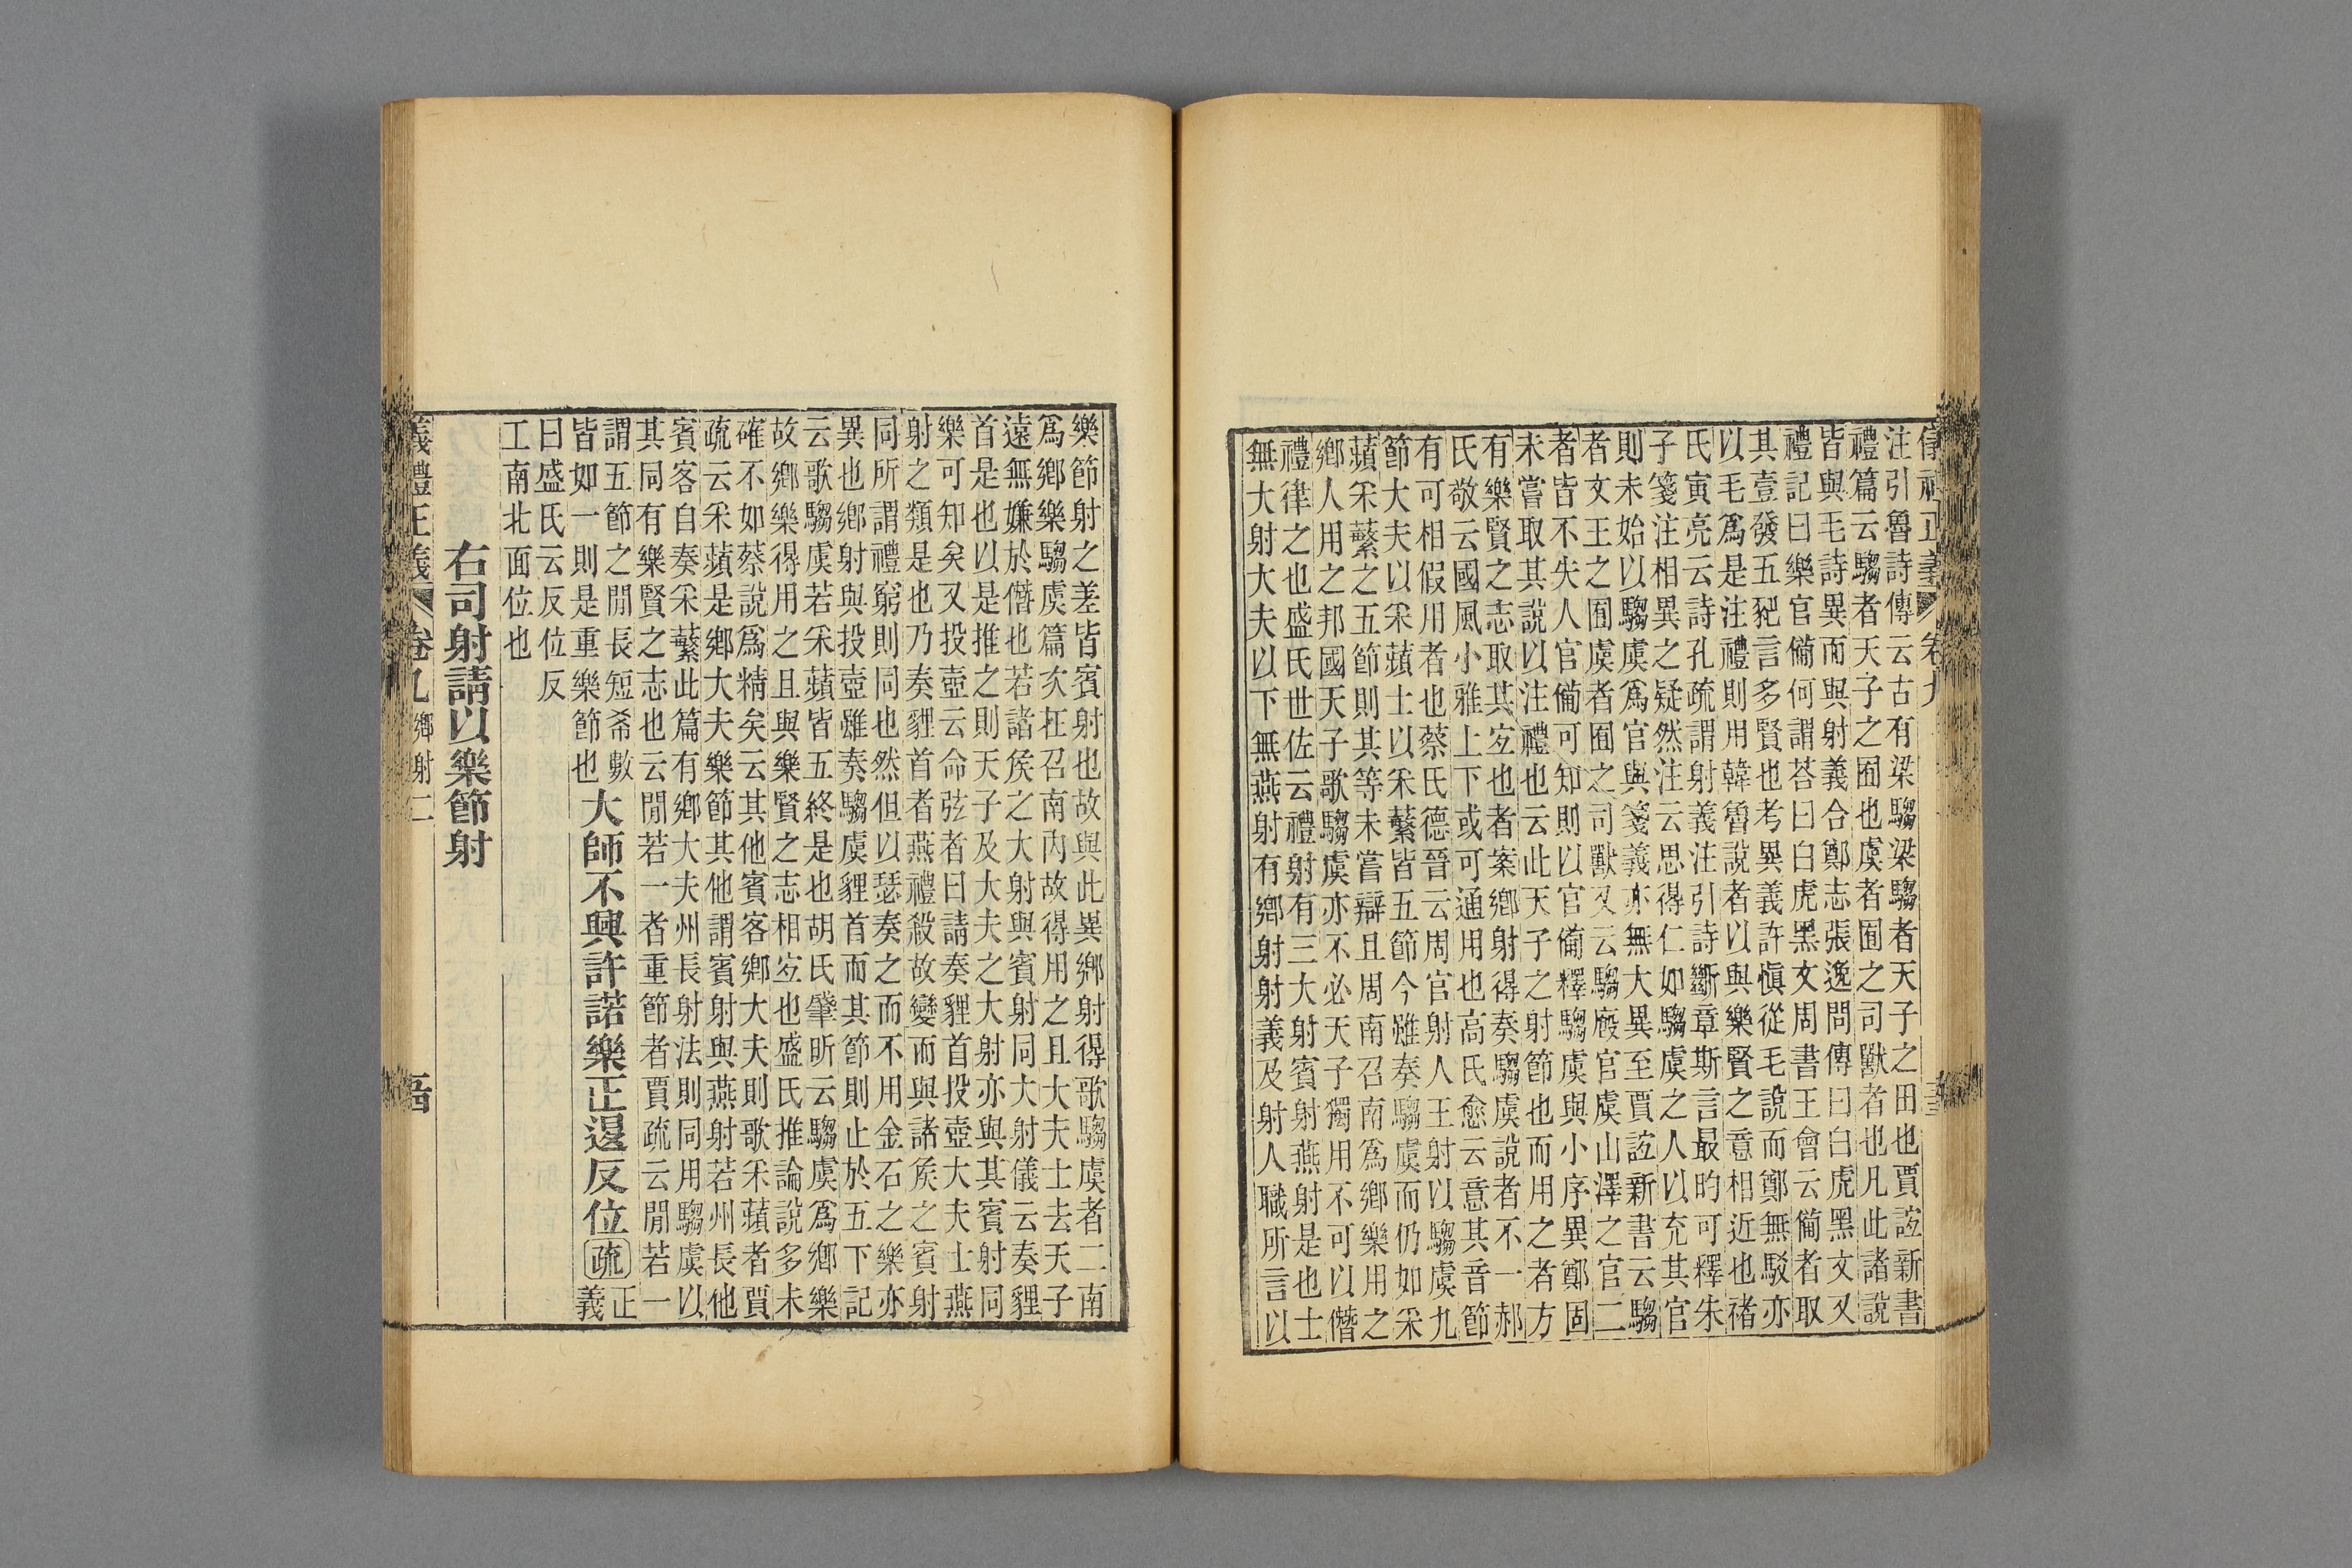 儀禮正義 卷九
注引魯詩傳云古有梁騶梁騶者天子之田也賈誼新書
禮篇云騶者天子之囿也虞者囿之司獸者也凡此諸說
皆與毛詩異而與射義合鄭志張逸問傳曰白虎黑文又
禮記曰樂官備何謂荅曰白虎黑文周書王會云備者取
其壹發五豝言多賢也考異義許愼從毛說而鄭無駁亦
以毛爲是注禮則用韓魯說者以與樂賢之意相近也褚
氏寅亮云詩孔疏謂射義注引詩斷章斯言最昀可釋朱
子箋注相異之疑然注云思得仁如騶虞之人以充其官
則未始以騶虞爲官與箋義亦無大異至賈誼新書云騶
者文王之囿虞者囿之司獸又云騶廏官虞山澤之官二
者皆不失人官備可知則以官備釋騶虞與小序異鄭固
未嘗取其說以注禮也云此天子之射節也而用之者方
有樂賢之志取其宐也者案鄉射得奏騶虞說者不一郝
氏敬云國風小雅上下或可通用也高氏愈云意其音節
有可相假用者也蔡氏德晉云周官射人王射以騶虞九
節大夫以采蘋士以采蘩皆五節今雖奏騶虞而仍如采
蘋采蘩之五節則其等未嘗辯且周南召南爲鄉樂用之
鄉人用之邦國天子歌騶虞亦不必天子獨用不可以僭
禮律之也盛氏世佐云禮射有三大射賓射燕射是也士
無大射大夫以下無燕射有鄉射射義及射人職所言以
樂節射之差皆賓射也故與此異鄉射得歌騶虞者二南
爲鄉樂騶虞篇次在召南內故得用之且大夫士去天子
遠無嫌於僭也若諸矦之大射與賓射同大射儀云奏貍
首是也以是推之則天子及大夫之大射亦與其賓射同
樂可知矣又投壺云命弦者曰請奏貍首投壺大夫士燕
射之類是也乃奏貍首者燕禮殺故變而與諸矦之賓射
同所謂禮窮則同也然但以瑟奏之而不用金石之樂亦
異也鄉射與投壺雖奏騶虞貍首而其節則止於五下記
云歌騶虞若采蘋皆五終是也胡氏肇昕云騶虞爲鄉樂
故鄉樂得用之且與樂賢之志相宐也盛氏推論說多未
確不如蔡說爲精矣云其他賓客鄉大夫則歌采蘋者賈
疏云采蘋是鄉大夫樂節其他謂賓射與燕射若州長他
賓客自奏采蘩此篇有鄉大夫州長射法則同用騶虞以
其同有樂賢之志也云閒若一者重節者賈疏云閒若一
謂五節之閒長短希數
皆如一則是重樂節也大師不興許諾樂正退反位疏正義
曰盛氏云反位反
工南北面位也
右司射請以樂節射
儀禮正義 卷九 鄉射二